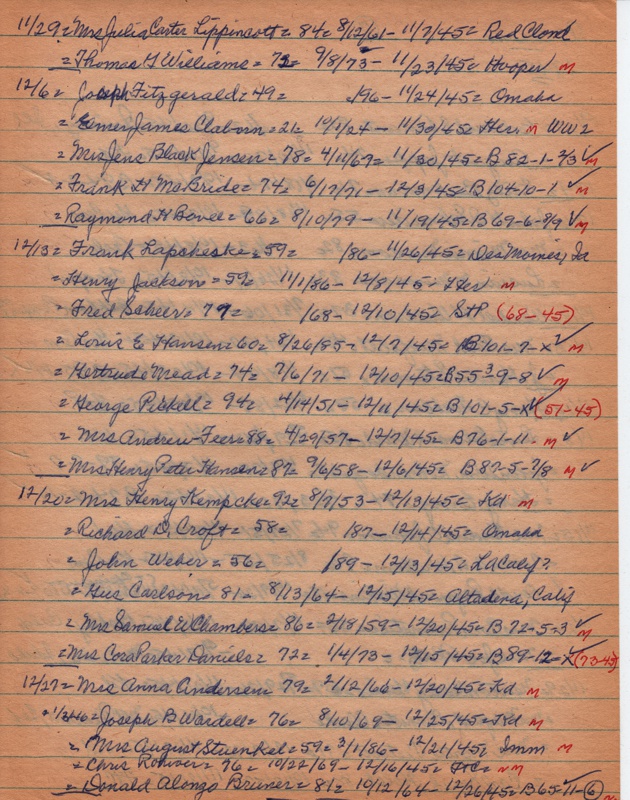 11/29 = Mrs Julia Carter Lippincott = 84 = 8/12/61 - 11/7/45 = Red Cloud
= Thomas G Williams = 72 = 9/8/73 - 11/23/45 = Hooper m
12/6 = Joseph Fitzgerald = 49 = /96 - 11/24/45 = Omaha
= James Claborn = 21 = 10/1/24 - 11/30/45 = Her. m WW2
= Mrs Jens Black Jensen = 78 = 4/11/67 = 11/30/45 = B 82-1-2/3 ✓ m
= Frank H McBride = 74 = 6/17/71 - 12/3/45 = B 104-10-1 ✓ m
= Raymond H Bovee = 66 = 8/10/79 - 11/19/45 = B 69-6-8/9 ✓ m
12/13 = Frank Lapcheske = 59 = /86 - 11/26/45 = Des Moines, Ia
= Henry Jackson = 59 = 11/1/86 - 12/8/45 = Her m
= Fred Scheer = 77 = /68 - 12/10/45 = StP (68-45)
= Louis E Hansen = 60 = 8/26/85 - 12/7/45 = B 101-7-x ✓ m
= Gertrude Mead = 74 = 7/6/71 - 12/10/45 = B 55 3-9-8 ✓ m
= George Pickell = 94 = 4/14/51 - 12/11/45 = B 101-5-x ✓ (51-45)
= Mrs Andrew Feer = 88 = 4/29/57 - 12/7/45 = B 76-1-11 - m ✓
= Mrs Henry Peter Hansen = 87 = 9/6/58 - 12/6/45 = B 87-5-7/8 m ✓
12/20 = Mrs Henry Kempcke = 92 = 8/7/53 - 12/13/45 = Kd m
= Richard D. Croft = 58 = /87 - 12/14/45 = Omaha
= John Weber = 56 = /89 - 12/13/45 = LaCalif?
= Gus Carlson 81 = 8/13/64 - 12/15/45 = Altadena, Calif
= Mrs Samuel W Chambers = 86 = 2/18/59 - 12/20/45 = B 72-5-3 ✓ m
= Mrs Cora Parker Daniels = 72 = 1/4/73 - 12/15/45 = B 89-12-x ✓ (73-45)
12/27 = Mrs Anna Andersen 79 = 2/12/66 - 12/20/45 = Kd m
1/3/46 = Joseph B Wardell = 76 = 8/10/69 - 12/25/45 = Kd m
= Mrs August Stuenkel = 59 = 3/1/86 - 12/21/45 = Imm m
= Chris Rohwer = 76 = 10/22/69 - 12/16/45 = FtC = nm
= Donald Alonzo Bruner = 81 = 10/12/64 - 12/26/45 = B 65-11-(6) ✓